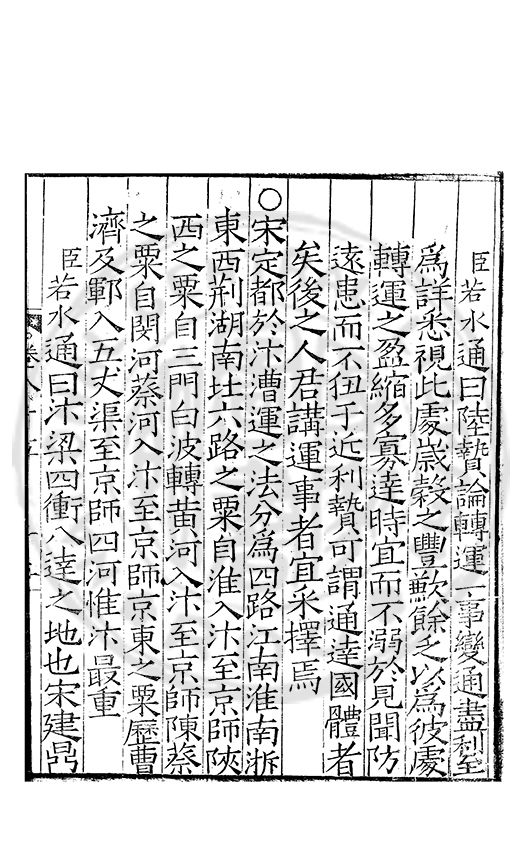 臣若水通曰陸贄論轉運一事變通盡利至
爲詳悉視此處歲穀之豐歉餘乏以爲彼處
轉運之盈縮多寡達時宜而不溺於見聞防
遠患而不狃于近利贄可謂通達國體者
矣後之人君講運事者宜采擇焉
○宋定都於汴漕運之法分爲四路江南淮南浙
東西荆湖南北六路之粟自淮入汴至京師陝
西之粟自三門白波轉黄河入汴至京師陳蔡
之粟自閔河蔡河入汴至京師京東之粟歷曹
濟及鄆入五丈渠至京師四河惟汴最重
臣若水通曰汴梁四衝八達之地也宋建鼎